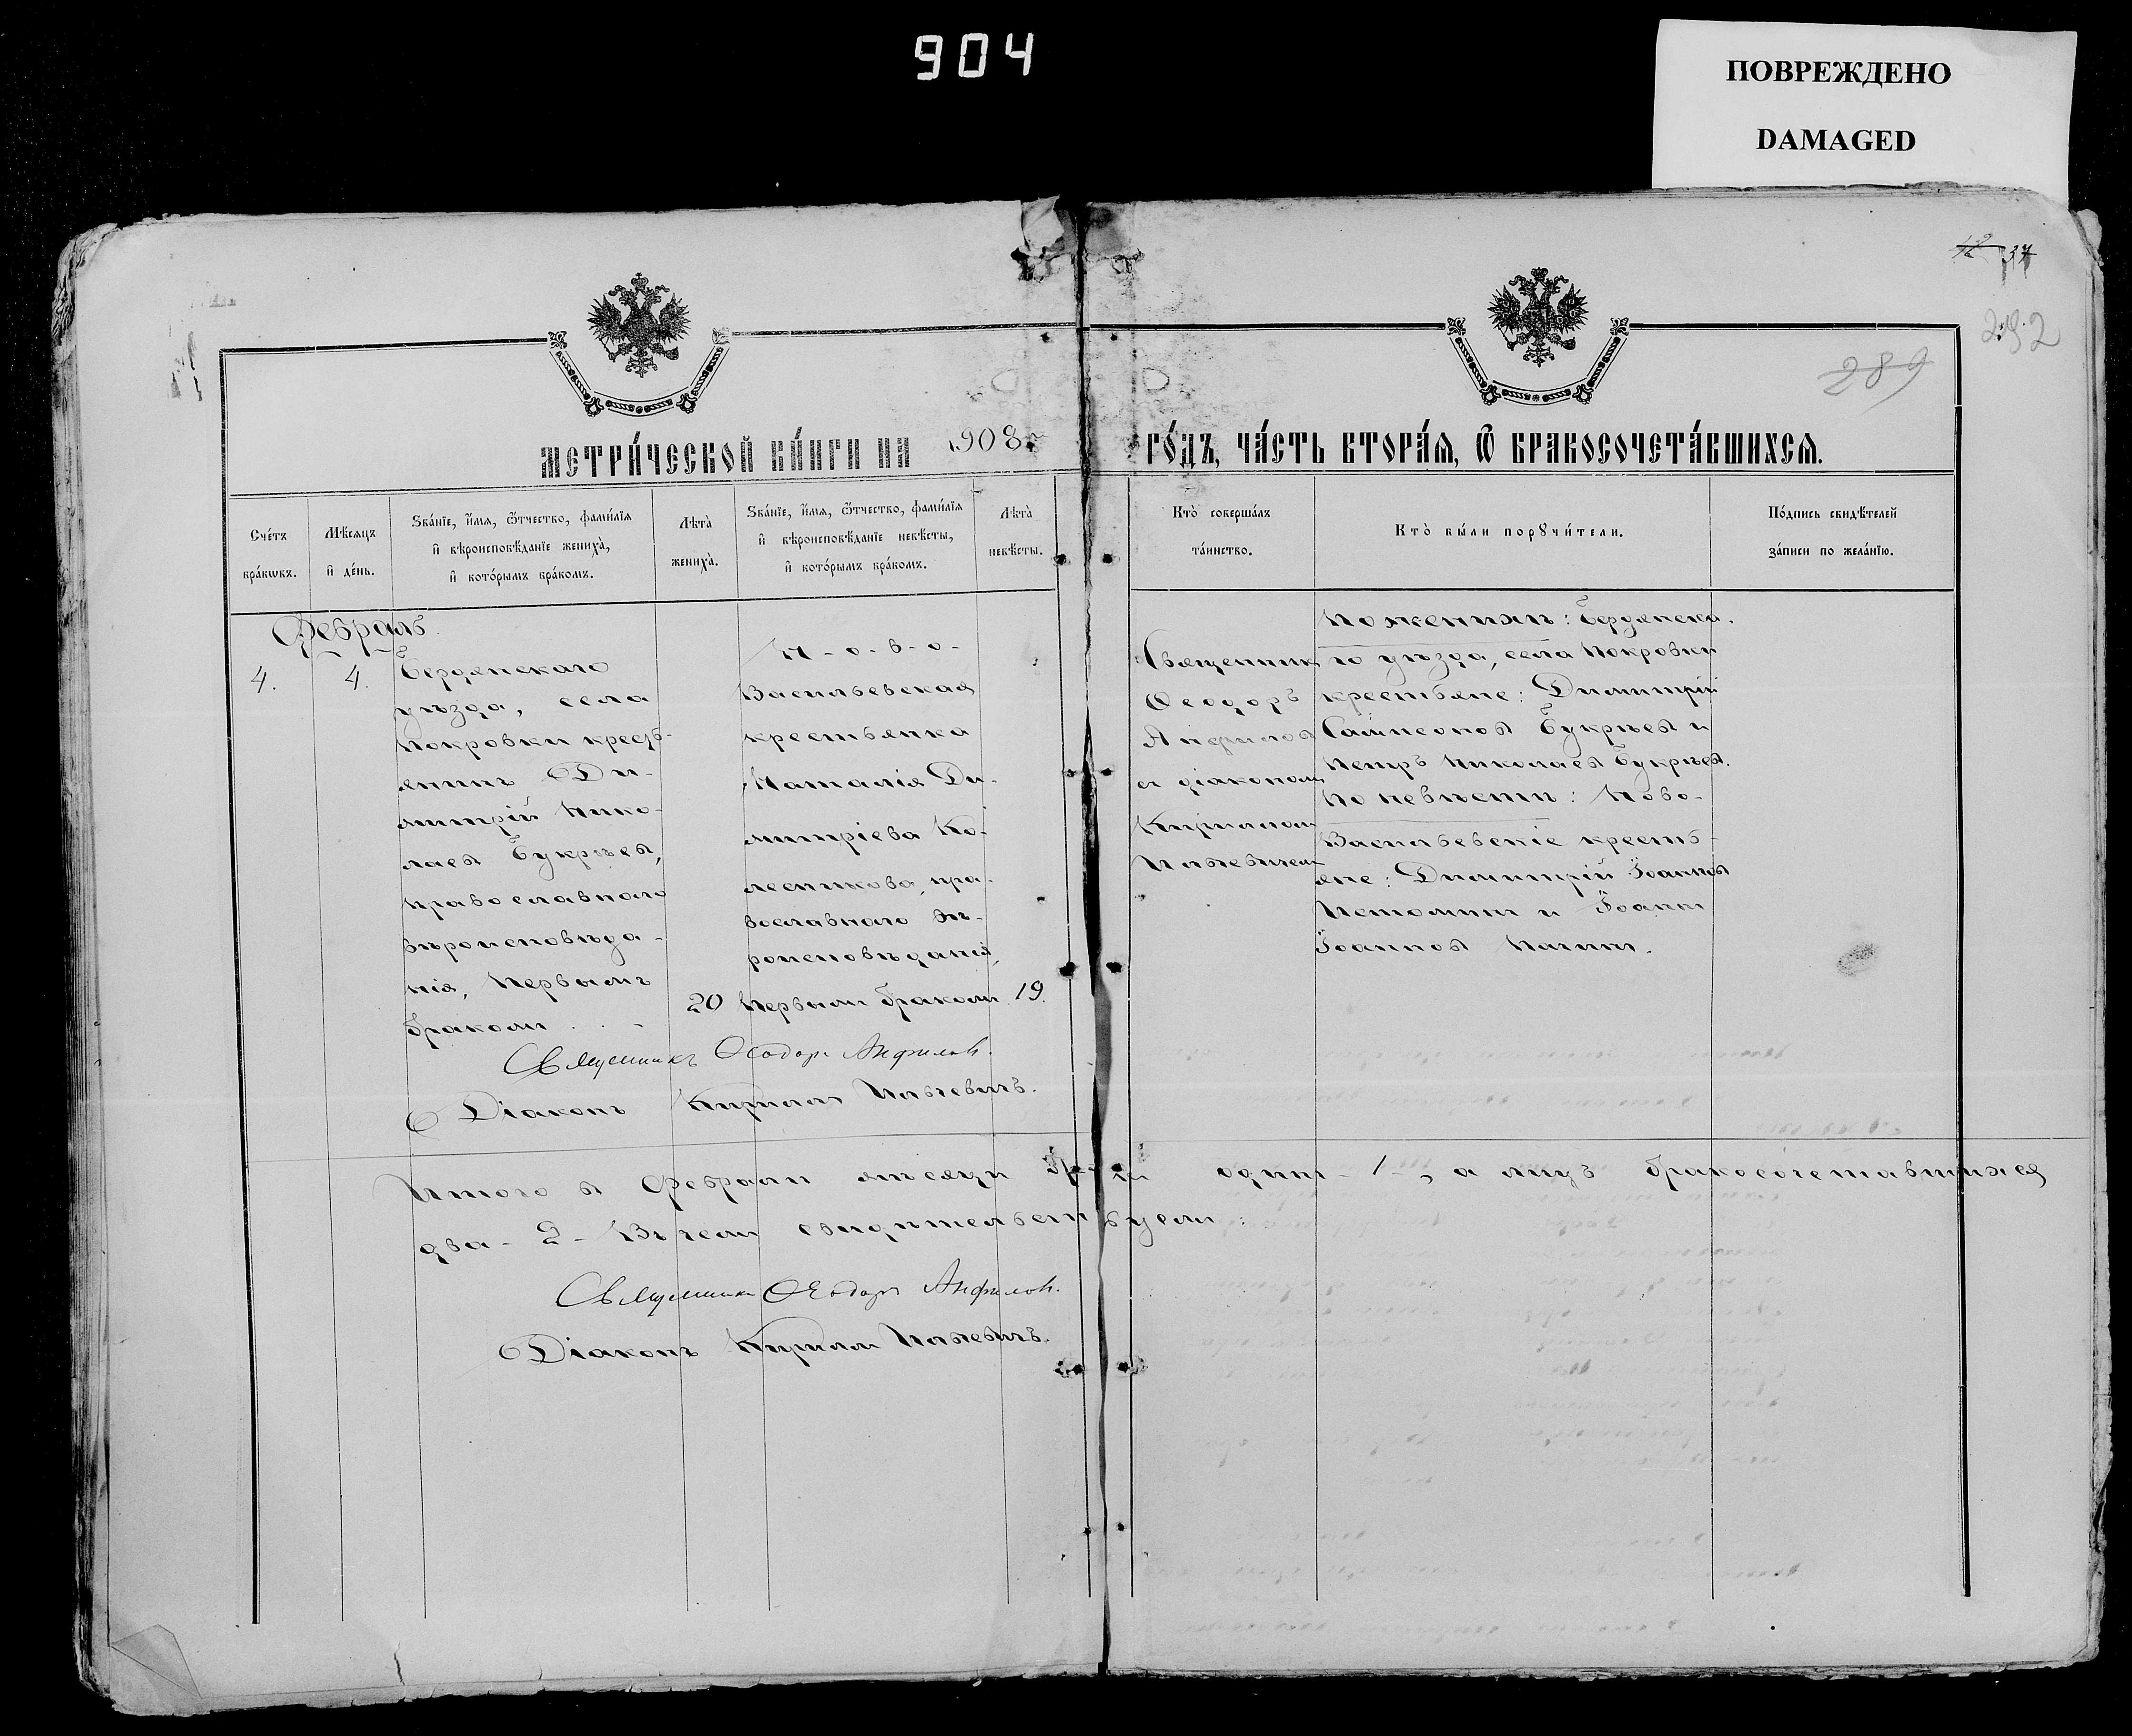 904
ПОВРЕЖДЕНО
DAMAGED
37
292
289
МЕТРИ́ЧЕСКОЙ КНИ́ГИ НА 1908 ГО́ДЪ, ЧА́СТЬ ВТОРА́Я, Ѽ БРАКОСОЧЕТА́ВШИХСЯ.
Сче́тъ бра́кѡвъ.
Мѣ́сяцъ и҆ де́нь.
Ѕва́нїе, и҆́мя, ѻ҆́тчество, фами́лїя
и҆ вѣроисповѣ́данїе жениха̀,
и҆ кото́рымъ бра́комъ.
Лѣта̀ жениха̀.
Ѕва́нїе, и҆́мя, ѻ҆́тчество, фами́лїя
и҆ вѣроисповѣ́данїе невѣ́сты,
и҆ кото́рымъ бра́комъ.
Лѣта̀ невѣ́сты.
Кто̀ соверша́лъ та́инство.
Кто̀ бы́ли порꙋчи́тели.
По́дпись свидѣ́телей
за́писи по жела́нїю.
Февраль.
4.
4.
Бердянскаго
уѣзда, села
Покровки кресть-
янинъ Ди-
митрій Нико-
лаевъ Букрѣевъ,
православнаго
вѣроисповѣда-
нія, первымъ
бракомъ
20
Н-о-в-о-
Васильевская
крестьянка
Наталія Ди-
митріева Ко-
лесникова, пра-
вославнаго вѣ-
роисповѣданія,
первымъ бракомъ
19.
Священникъ
Ѳеодоръ
Анфиловъ
съ діакономъ
Кирилломъ
По женихѣ: Бердянска-
го уѣзда, села Покровки
крестьяне: Димитрій
Сампсоновъ Букрѣевъ и
Петръ Николаевъ Букрѣевъ.
По невѣстѣ: Ново-
Васильевскіе кресть-
яне: Димитрій Іоанновъ
Истоминъ и Іоаннъ
Іоанновъ
Священникъ Ѳеодоръ Анфиловъ.
Діаконъ Кириллъ
Итого въ Февралѣ мѣсяцѣ одинъ - 1 -, а лицъ бракосочетавшихся
два - 2 - Въ чемъ свидѣтельствуемъ:
Священникъ Ѳеодоръ Анфиловъ.
Діаконъ Кириллъ